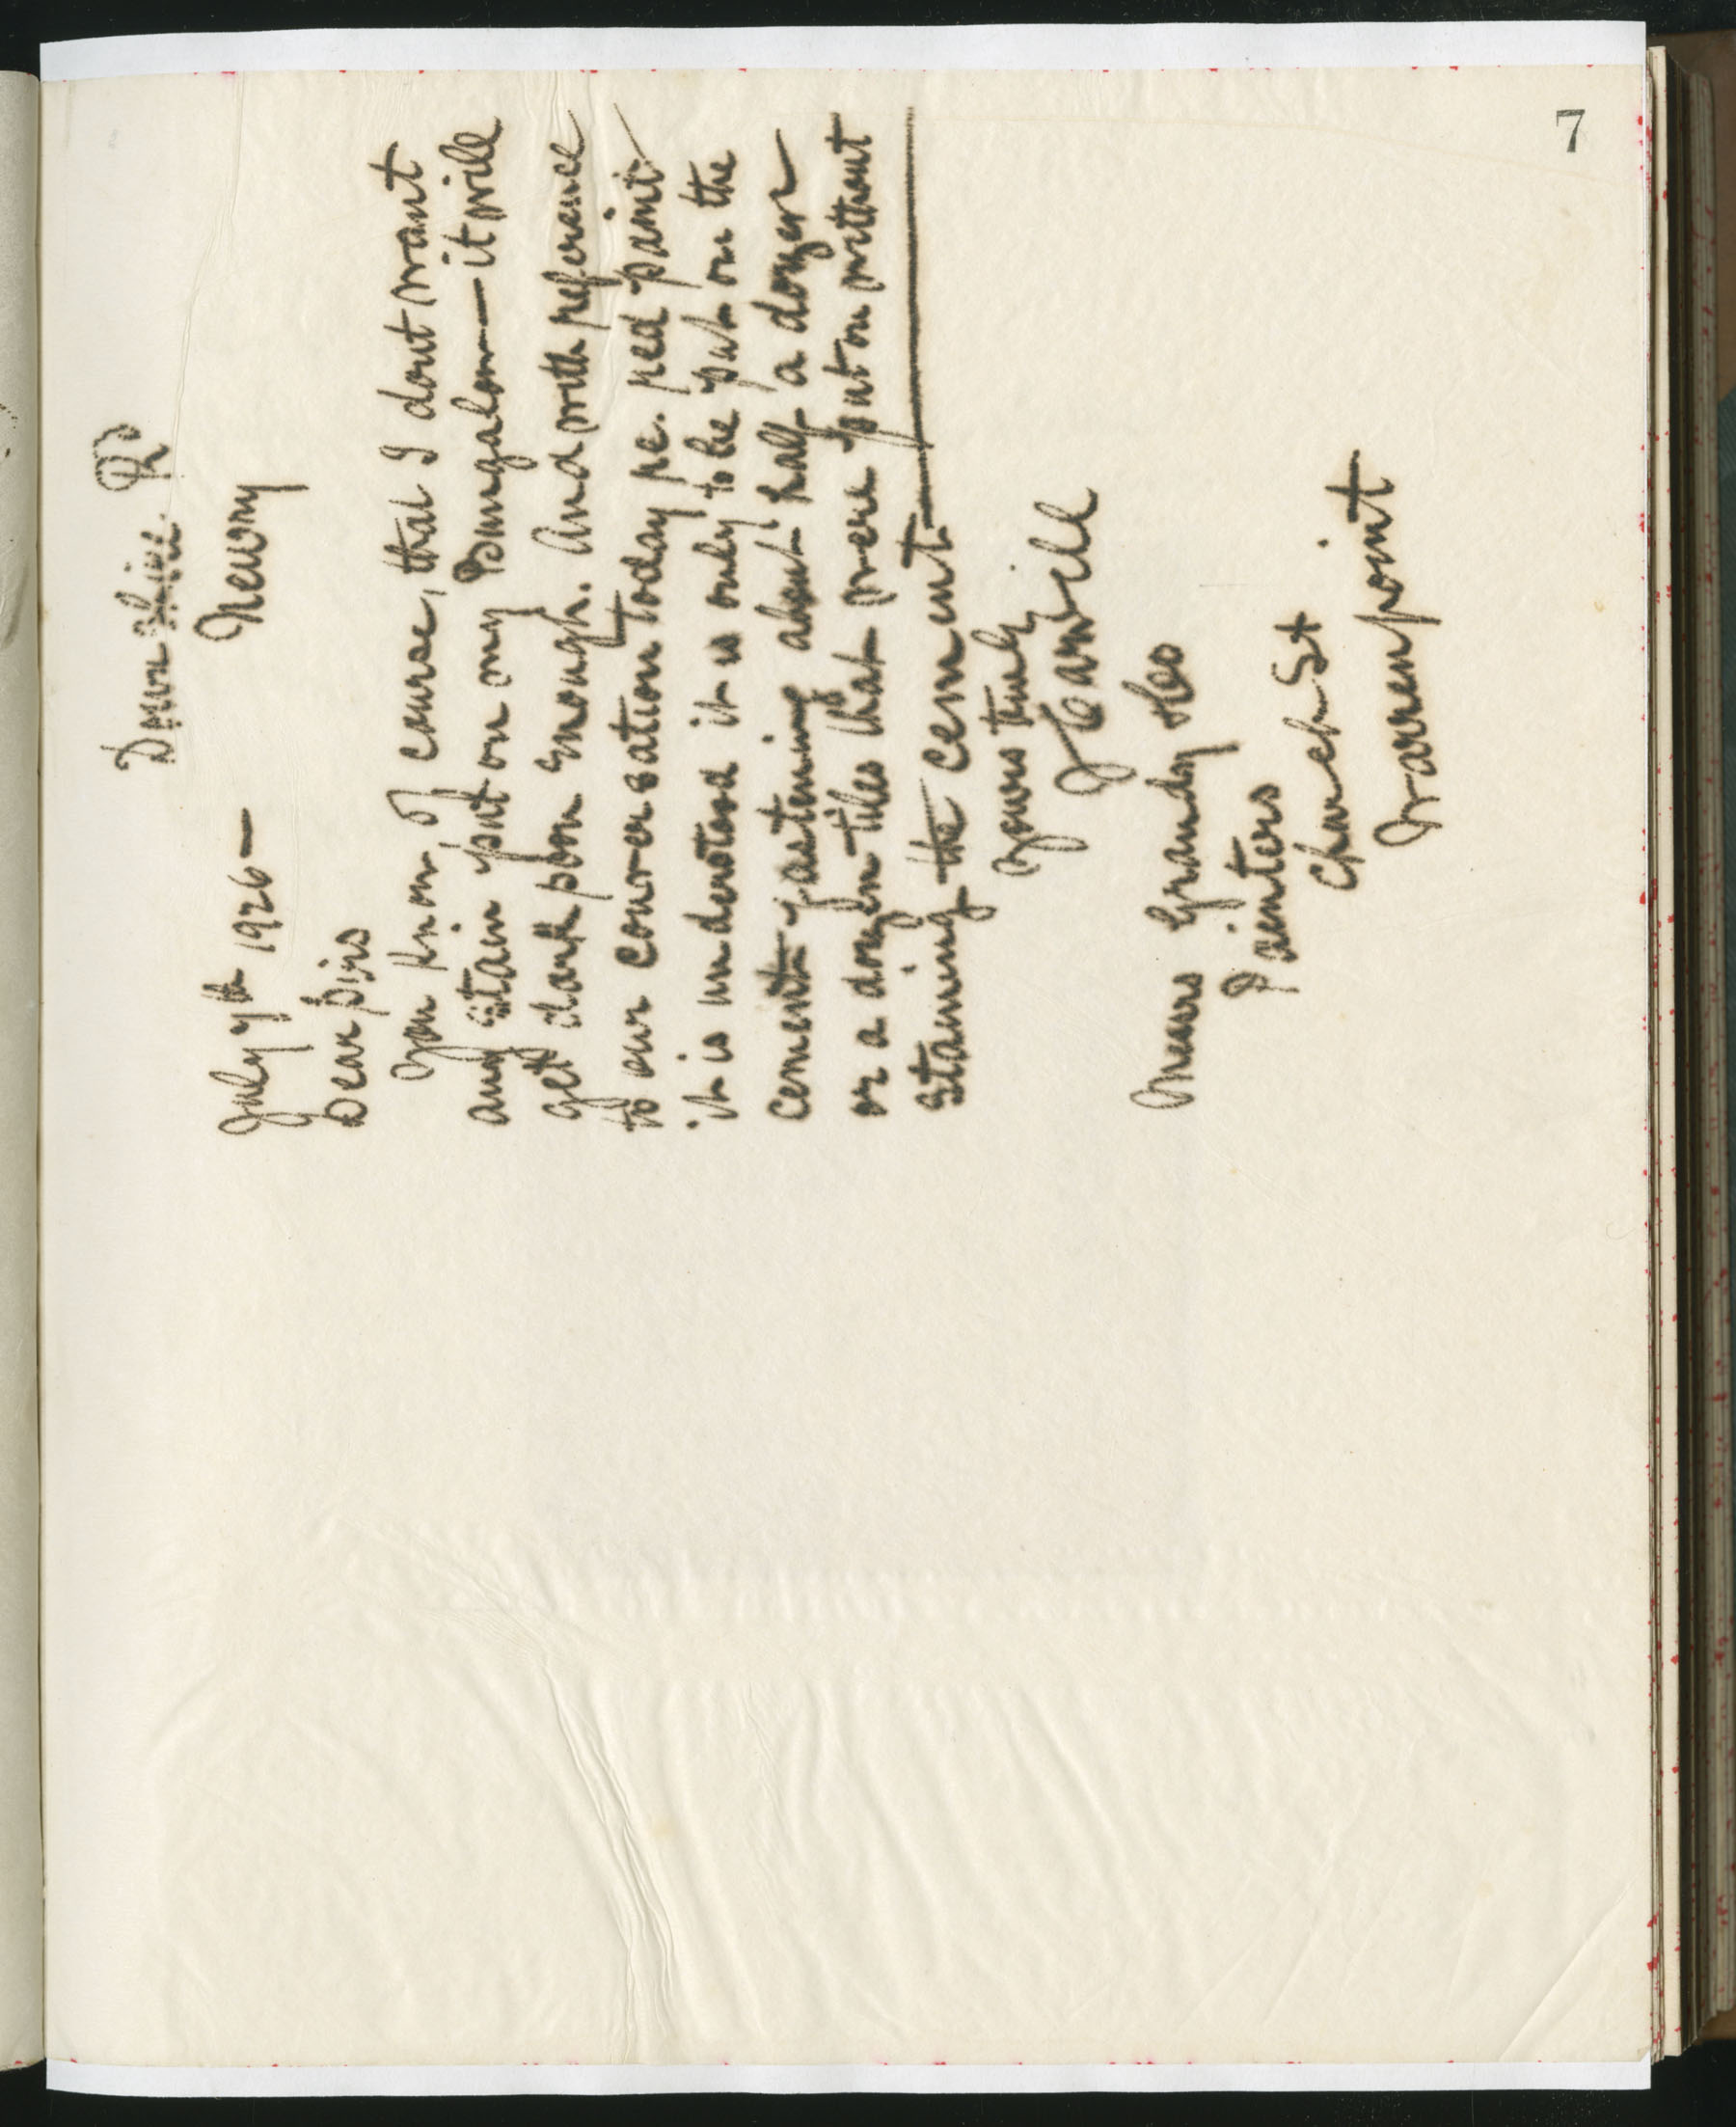 7
Downshire Rd
Newry
July 7th 1926 —
Dear Sirs
You know, of course, that I dont want
any stain put on my Bungalow — it will
get dark soon enough. And with reference
to our conversation today re. red paint
it is understood it is only to be put on the
cement fastening about half a dozen
or a dozen tiles that were put on without
staining the cement —
Yours truly
J
Messrs Grandy &Co
Painters
Church St.
Warrenpoint